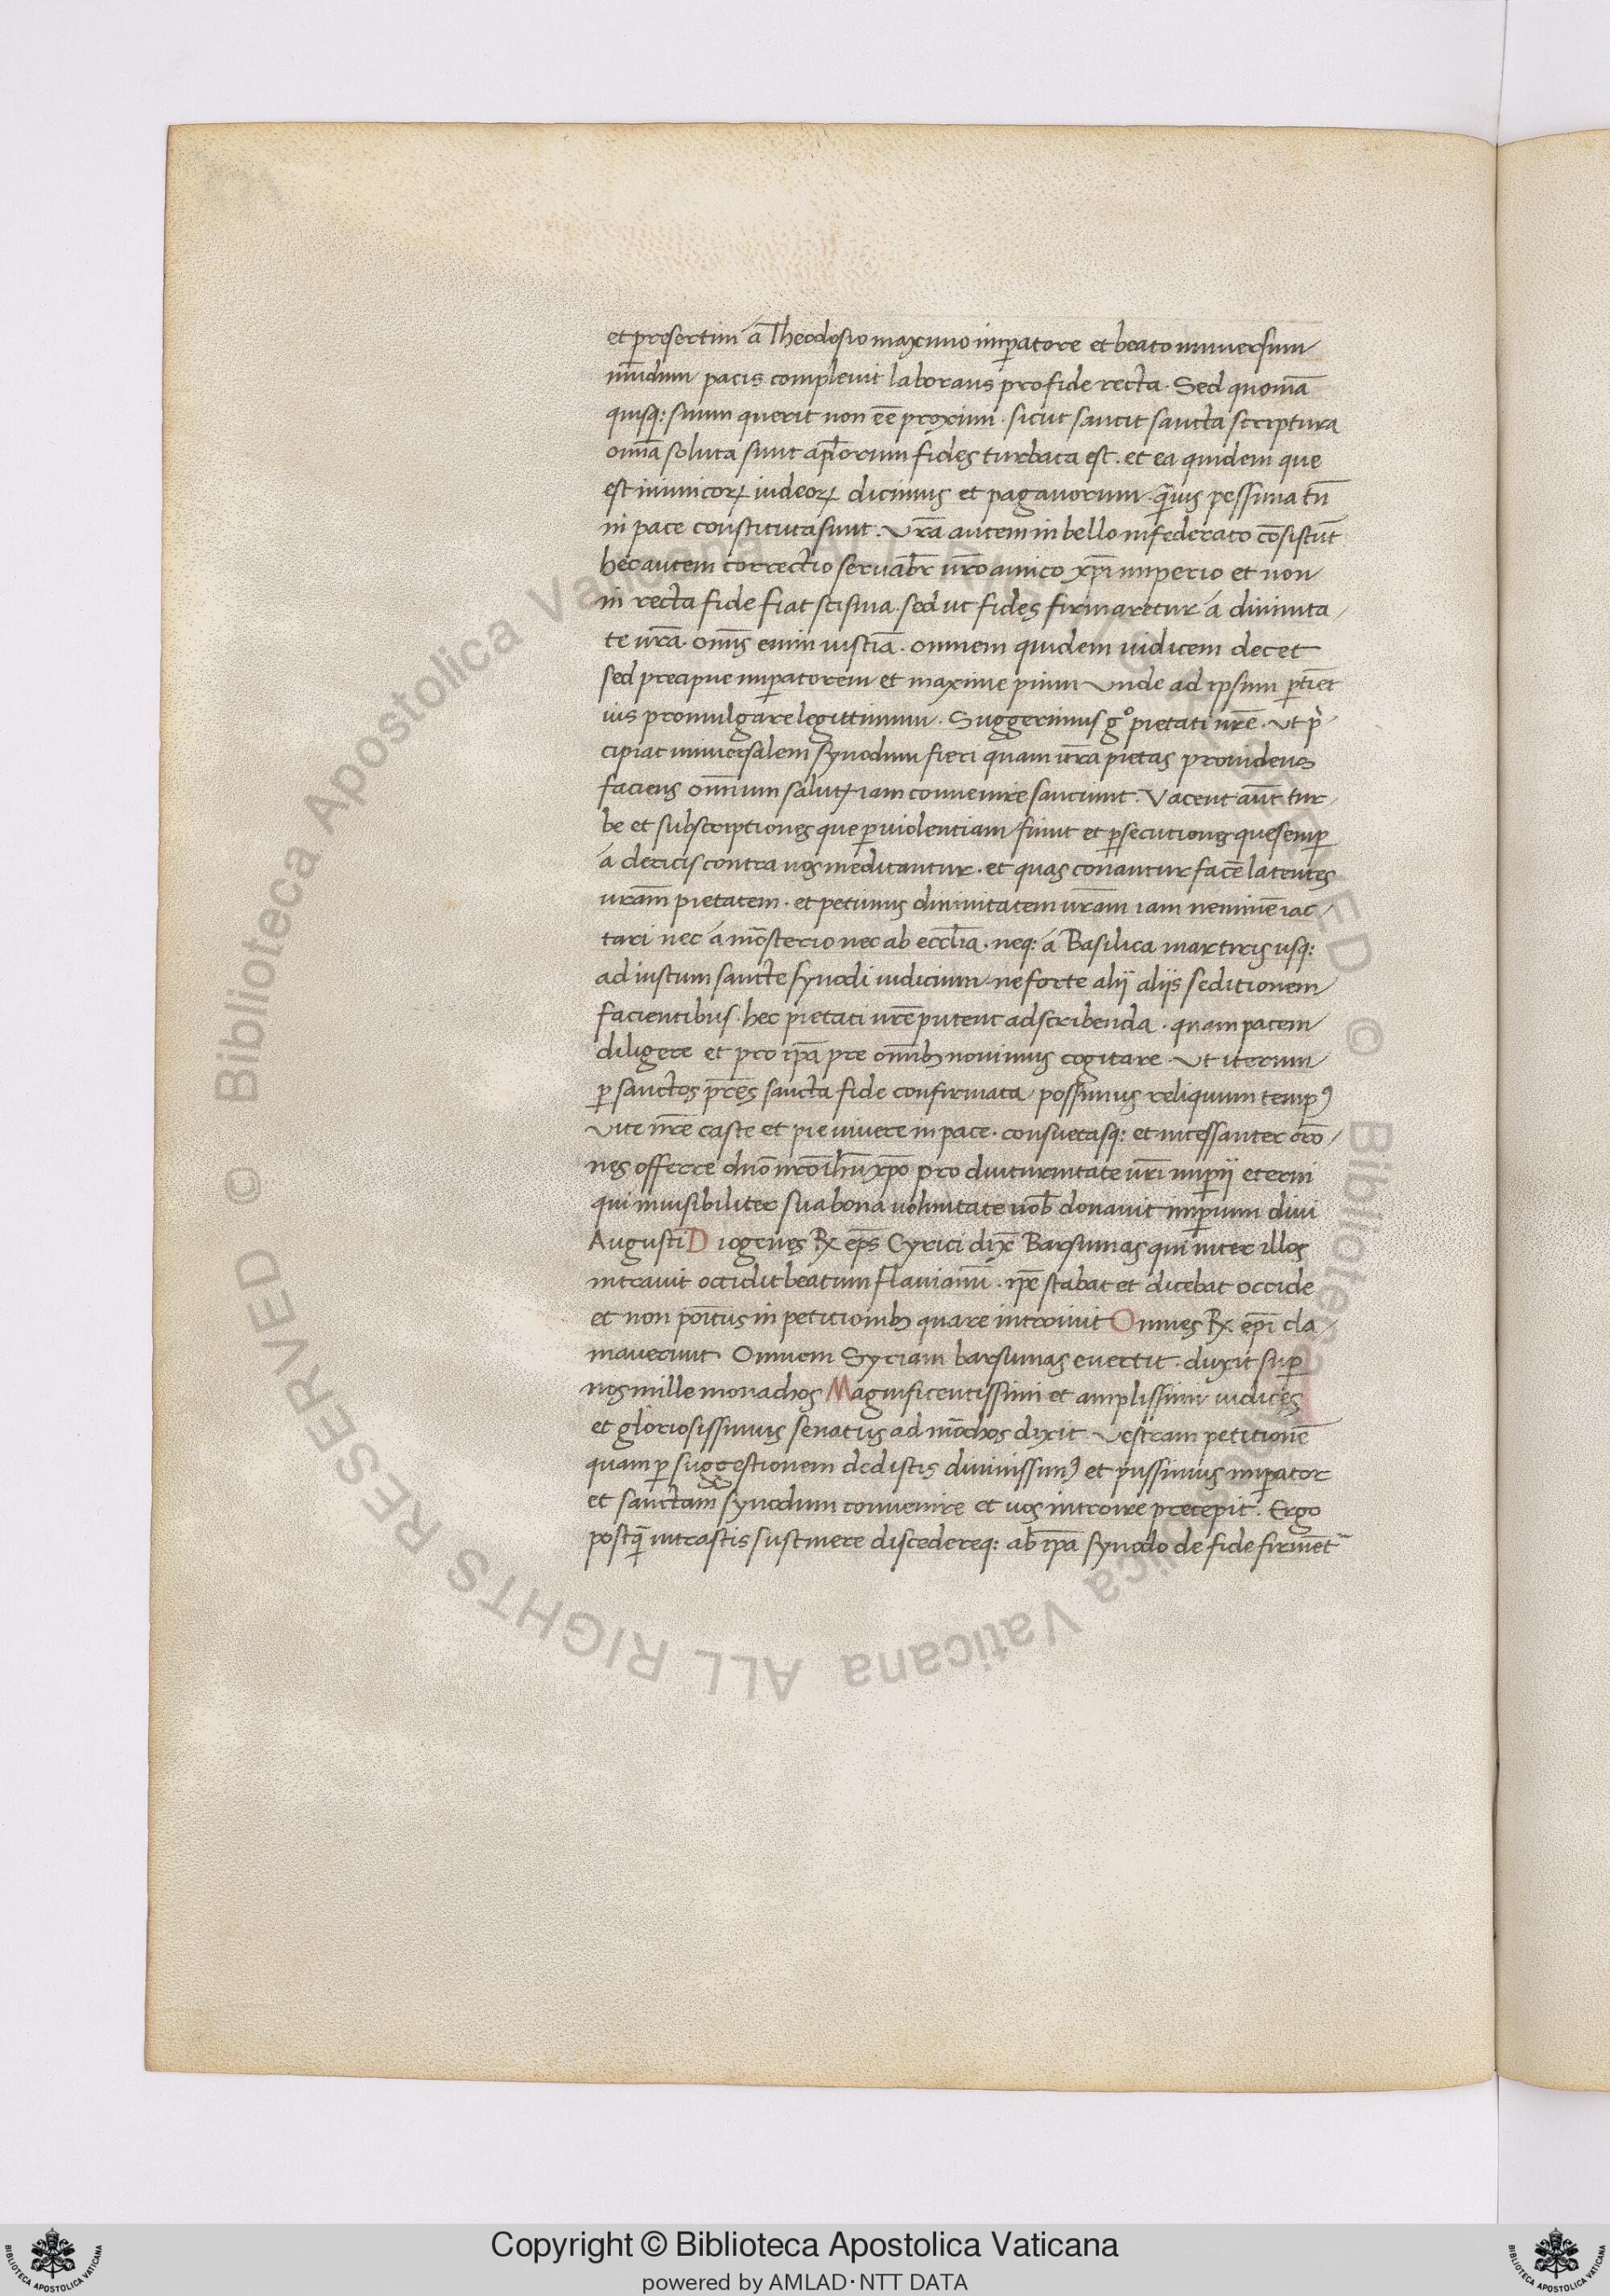 et presertim á Theodosio maximo imꝑatore et beato uniuersum
mūdum pacis compleuit laborans pro fide recta. Sed quoniā
quisq: suum querit non eē proximi. sicut sancit sancta scriptura
omīa soluta sunt apl̄orum fides turbata est. et ea quidem que
est inimicoꝝ iudeoꝝ dicimus et paganorum. q̄uis pessima tn̄
in pace constituta sunt. Vrā autem in bello infederato cōsistūt
hec autem correctio seruabr̄ ur̄o amico xp̄i imperio et non
in recta fide fiat scisma. sed ut fides firmaretur á diuinita
te ur̄a. om̄s enim iustiā. omnem quidem iudicem decet
sed precipue imꝑatorem et maxime pium Vnde ad ipsum ꝑtiēt
ius promulgare legittimum. Suggerimus gº pietati ur̄e. Vt p̄
cipiat uniuersalem synodum fieri quam ur̄a pietas prouidens
faciens omnium salutꝫ iam conuenire sanciunt. Vacent aūt tur
be et subscriptiones que ꝑ uiolentiam fiunt et ꝑsecutiones que semꝑ
á clericis contra nos meditantur. et quas conantur facē latentes
ur̄am pietatem. et petimus diuinitatem ur̄am iam neminē iac
tari nec á mōsterio nec ab eccl̄ia. neq: á Basilica martiris usq:
ad iustum sancte synodi iudicium ne forte alij alijs seditionem
facientibus. hec pietati ur̄e putent adscribenda. quam pacem
diligere et pro ip̄a pre omībꝫ nouimus cogitare Vt iterum
ꝑ sanctos pr̄es sancta fide confirmata possimus reliquum tempꝰ
Vite nr̄e caste et pie uiuere in pace. consuetasq: et incessanter orō
nes offerre dn̄o nr̄o ih̄u xp̄o pro diuturnitate ur̄i imꝑij eterni
qui inuisibiliter sua bona uoluntate uob̄ donauit imꝑium diui
Augusti Diogenes R̸ ep̄s Cyrici dix̄ Barsumas qui inter illos
intrauit occidit beatum Flauianū. ip̄e stabat et dicebat occide
et non poītus in petitionibꝫ quare introiuit Omnes R̸. ep̄i cla
mauerunt Omnem Syriam barsumas euertit. duxit suꝑ
nos mille monachos Magnificentissimi et amplissimi iudices
et gloriosissimus senatus ad mōchos dixit Vestram petitionē
quam ꝑ suggestionem dedistis diuinissimꝰ et pijssimus imꝑator
et sanctam synodum conuenire et uos introire precepit. Ergo
postq̄ intrastis sustinere discedereq: ab ip̄a synodo de fide firmēt̄
Copyright © Biblioteca Apostolica Vaticana
powered by AMLAD·NTT DATA